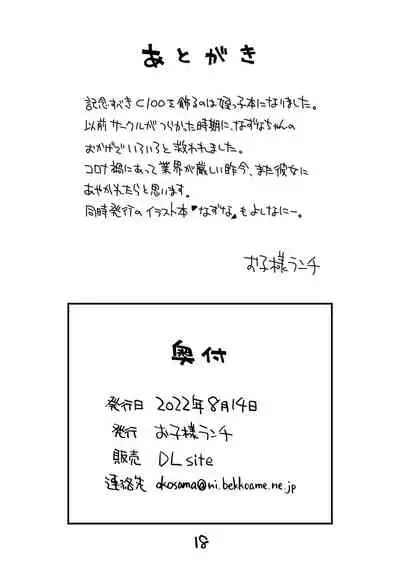 あとがき
記念すべきC100を飾るのは姪っ子本になりました。
以前サークルがつらかった時期に、なずなちゃんの
おかげでいろいろと救われました。
コロナ禍にあって業界が厳しい昨今、また彼女に
あやかれたらと思います。
同時発行のイラスト本『なずな』もよしなにー。
お子様ランチ
奥付
発行日 2022年8月14日
発行 お子様ランチ
販売 DLsite
連絡先 okosama@ni.bekkoame.ne.jp
18